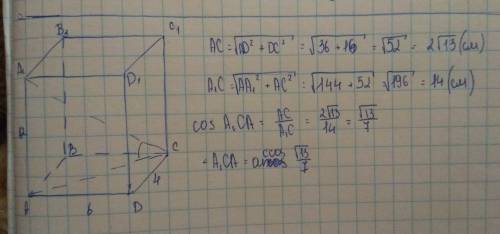 B₂
C₁
A₁
D₁
12
B
C
4
A
6
D
AC = √(AD² + DC²) = √(36 + 16) = √52 = 2√13 (см)
A₁C = √(AA₁² + AC²) = √(144 + 52) √196 = 14 (см)
cos A₁CA = AC/A₁C = 2√13/14 = √13/7
A₁CA = arccos √13/7